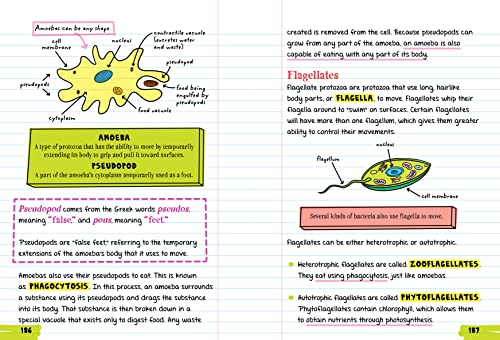 Amoebas can be any shape.
contractile vacuole
(excretes water
and waste)
nucleus
cell
membrane
pseudopod
pseudopods
food being
engulfed by
pseudopods
food vacuole
cytoplasm
AMOEBA
A type of protozoa that has the ability to move by temporarily
extending its body to grip and pull it toward surfaces.
PSEUDOPOD
A part of the amoeba's cytoplasm temporarily used as a foot.
Pseudopod comes from the Greek words pseudos,
meaning "false," and pous, meaning "feet."
"Pseudopods are "false feet" referring to the temporary
extensions of the amoeba's body that it uses to move.
Amoebas also use their pseudopods to eat. This is known
as PHAGOCYTOSIS. In this process, an amoeba surrounds
a substance using its pseudopods and drags the substance
into its body. That substance is then broken down in a
special vacuole that exists only to digest food. Any waste
186
created is removed from the cell. Because pseudopods can
grow from any part of the amoeba, an amoeba is also
capable of eating with any part of its body.
Flagellates
Flagellate protozoa are protozoa that use long, hairlike
body parts, or FLAGELLA, to move. Flagellates whip their
flagella around to "swim" on surfaces. Certain flagellates
will have more than one flagellum, which gives them greater
ability to control their movements.
nucleus
flagellum
cell membrane
Several kinds of bacteria also use flagella to move.
Flagellates can be either heterotrophic or autotrophic.
Heterotrophic flagellates are called ZOOFLAGELLATES.
They eat using phagocytosis, just like amoebas.
Autotrophic flagellates are called PHYTOFLAGELLATES.
Phytoflagellates contain chlorophyll, which allows them
to obtain nutrients through photosynthesis.
187